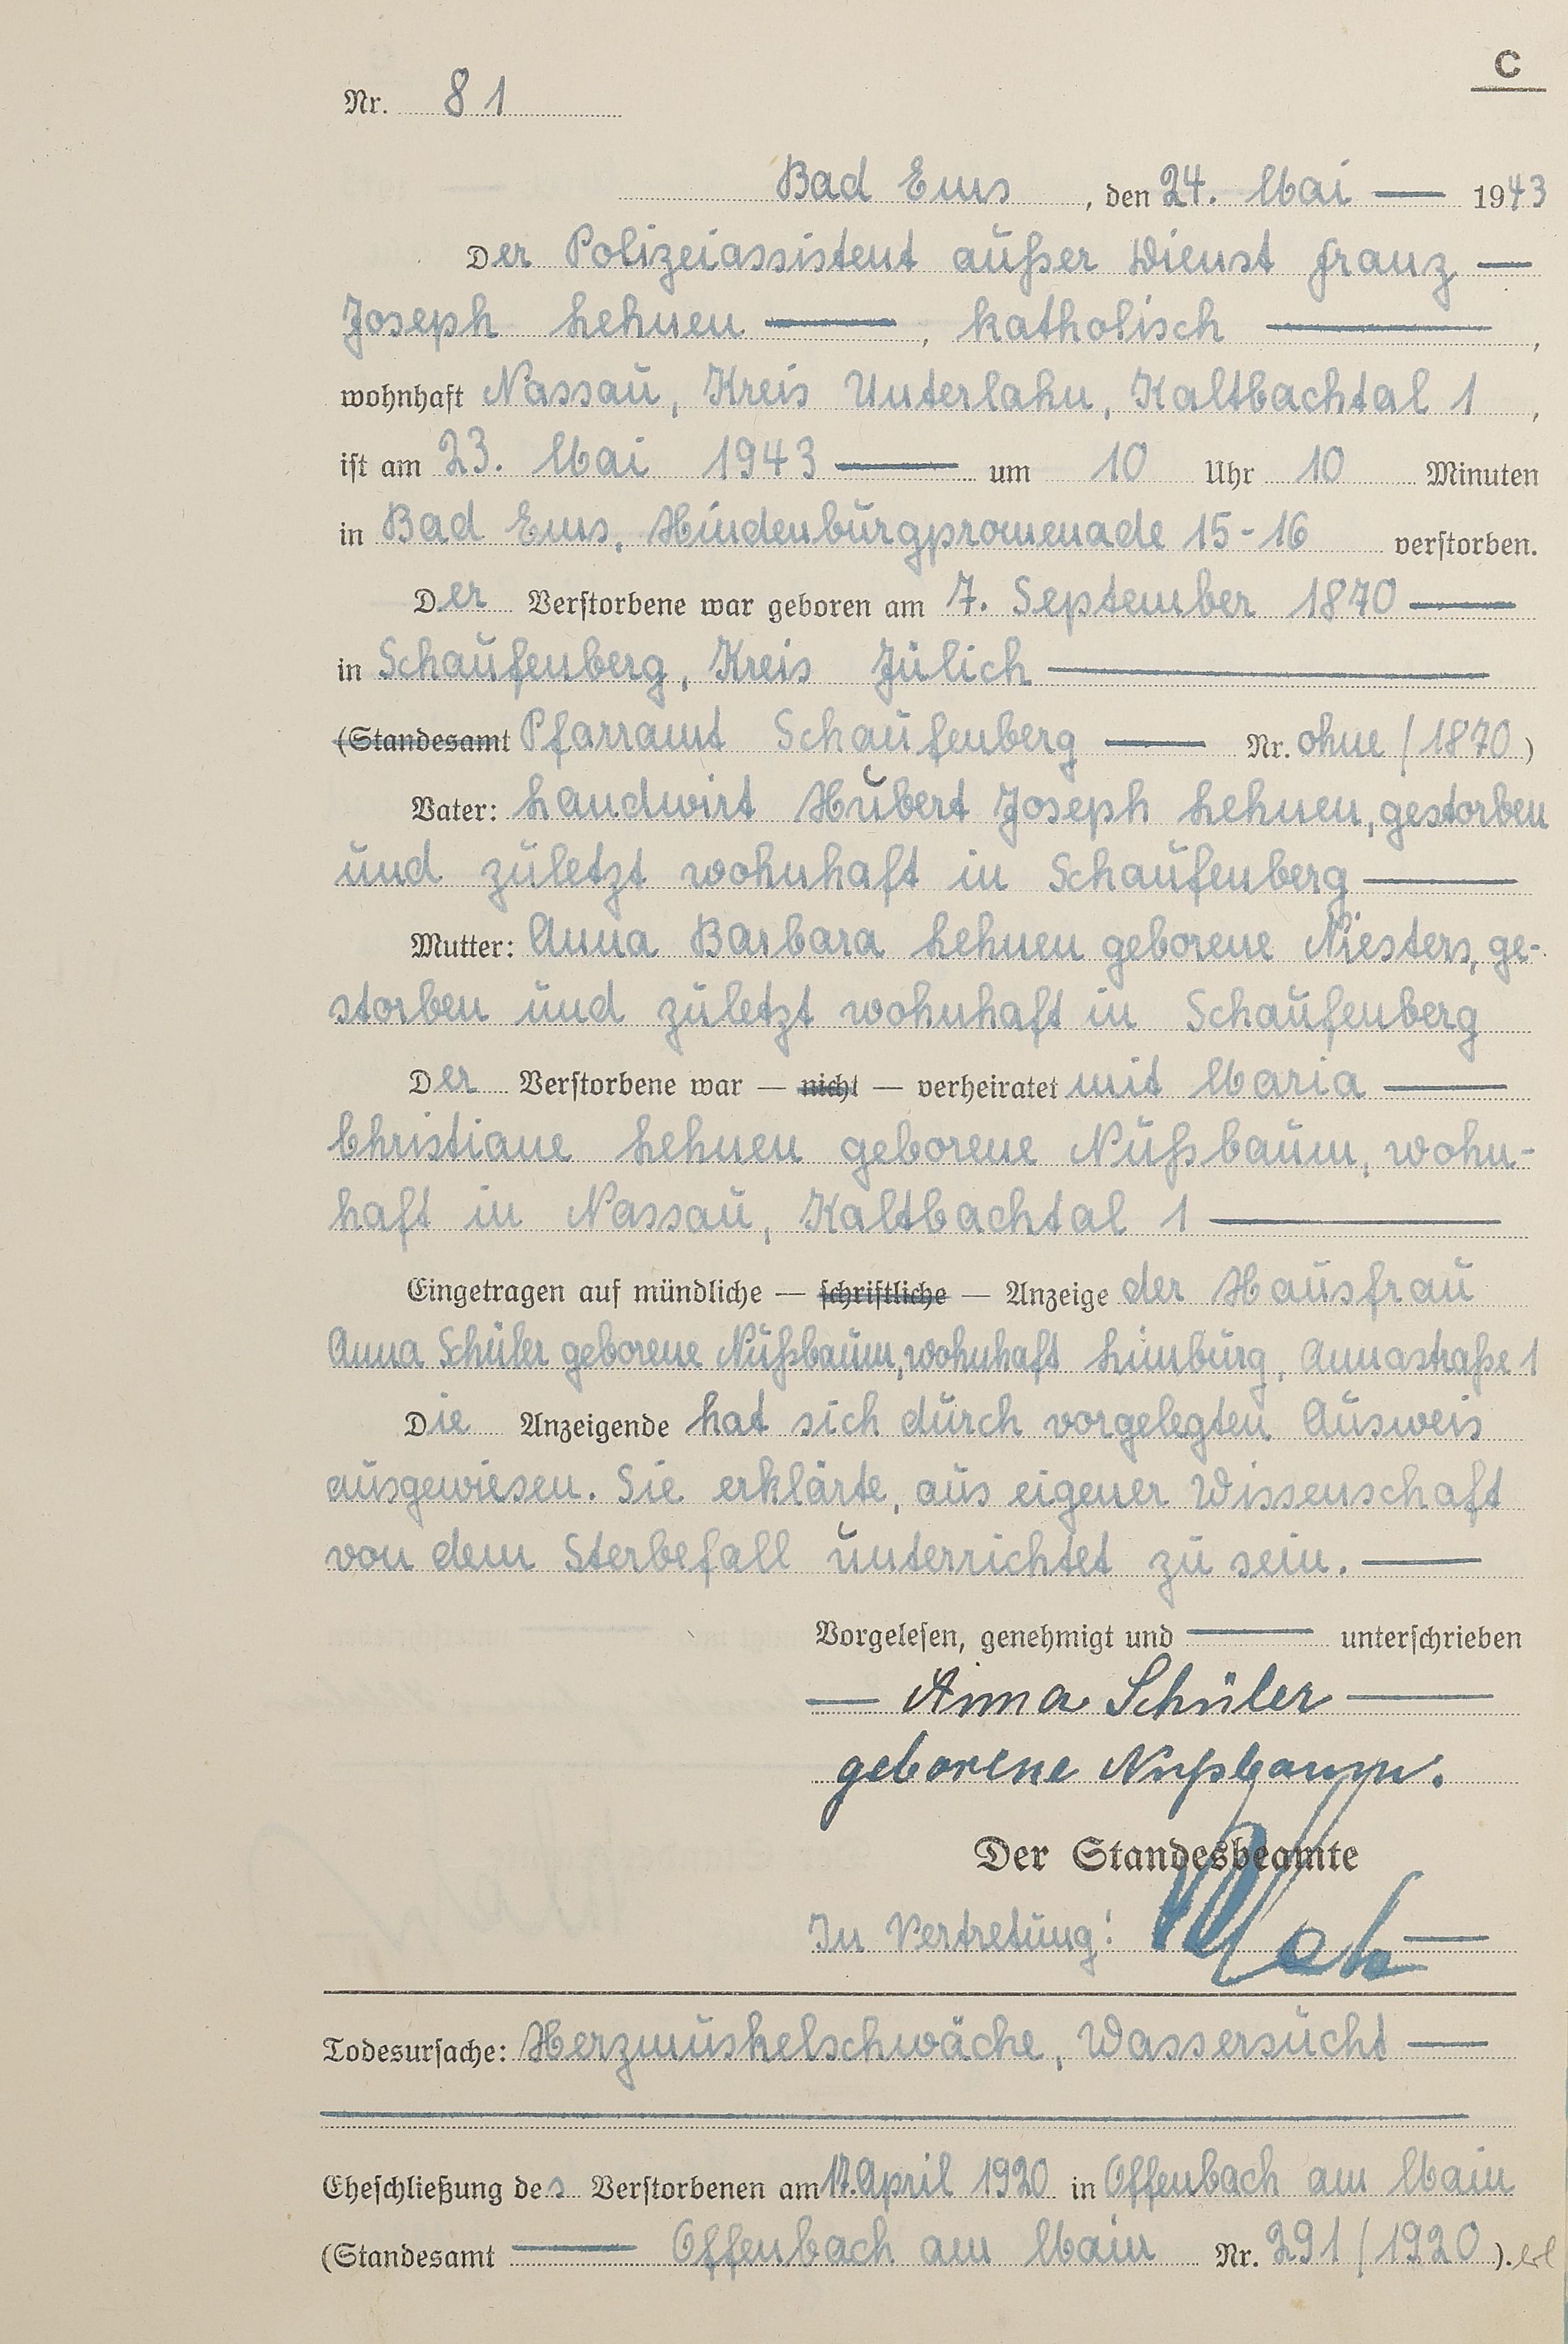 C
Nr. 81
Bad Ems, den 24. Mai — 1943
Der Polizeiassistent außer Dienst Franz —
Joseph Lehnen —, katholisch —,
wohnhaft Nassau, Kreis Unterlahn, Kaltbachtal 1,
ist am 23. Mai 1943 — um 10 Uhr 10 Minuten
in Bad Ems, Hindenburgpromenade 15-16 verstorben.
Der Verstorbene war geboren am 7. September 1870 —
in Schaufenberg, Kreis Jülich —
(Standesamt Pfarramt Schaufenberg — Nr. ohne/1870)
Vater: Landwirt Hubert Joseph Lehnen, gestorben
und zuletzt wohnhaft in Schaufenberg —
Mutter: Anna Barbara Lehnen geborene Niesters, ge-
storben und zuletzt wohnhaft in Schaufenberg
Der Verstorbene war — nicht — verheiratet mit Maria —
Christiane Lehnen geborene Nußbaum, wohn-
haft in Nassau, Kaltbachtal 1 —
Eingetragen auf mündliche — schriftliche — Anzeige der Hausfrau
Anna Schüler geborene Nußbaum, wohnhaft Limburg, Annastraße 1
Die Anzeigende hat sich durch vorgelegten Ausweis
ausgewiesen. Sie erklärte, aus eigener Wissenschaft
von dem Sterbefall unterrichtet zu sein. —
Vorgelesen, genehmigt und — unterschrieben
— Anna Schüler —
geborene Nußbaum.
Der Standesbeamte
In Vertretung! —
Todesursache: Herzmuskelschwäche, Wassersucht —
Eheschließung des Verstorbenen am 17. April 1920 in Offenbach am Main
(Standesamt — Offenbach am Main Nr. 291/1920). erl